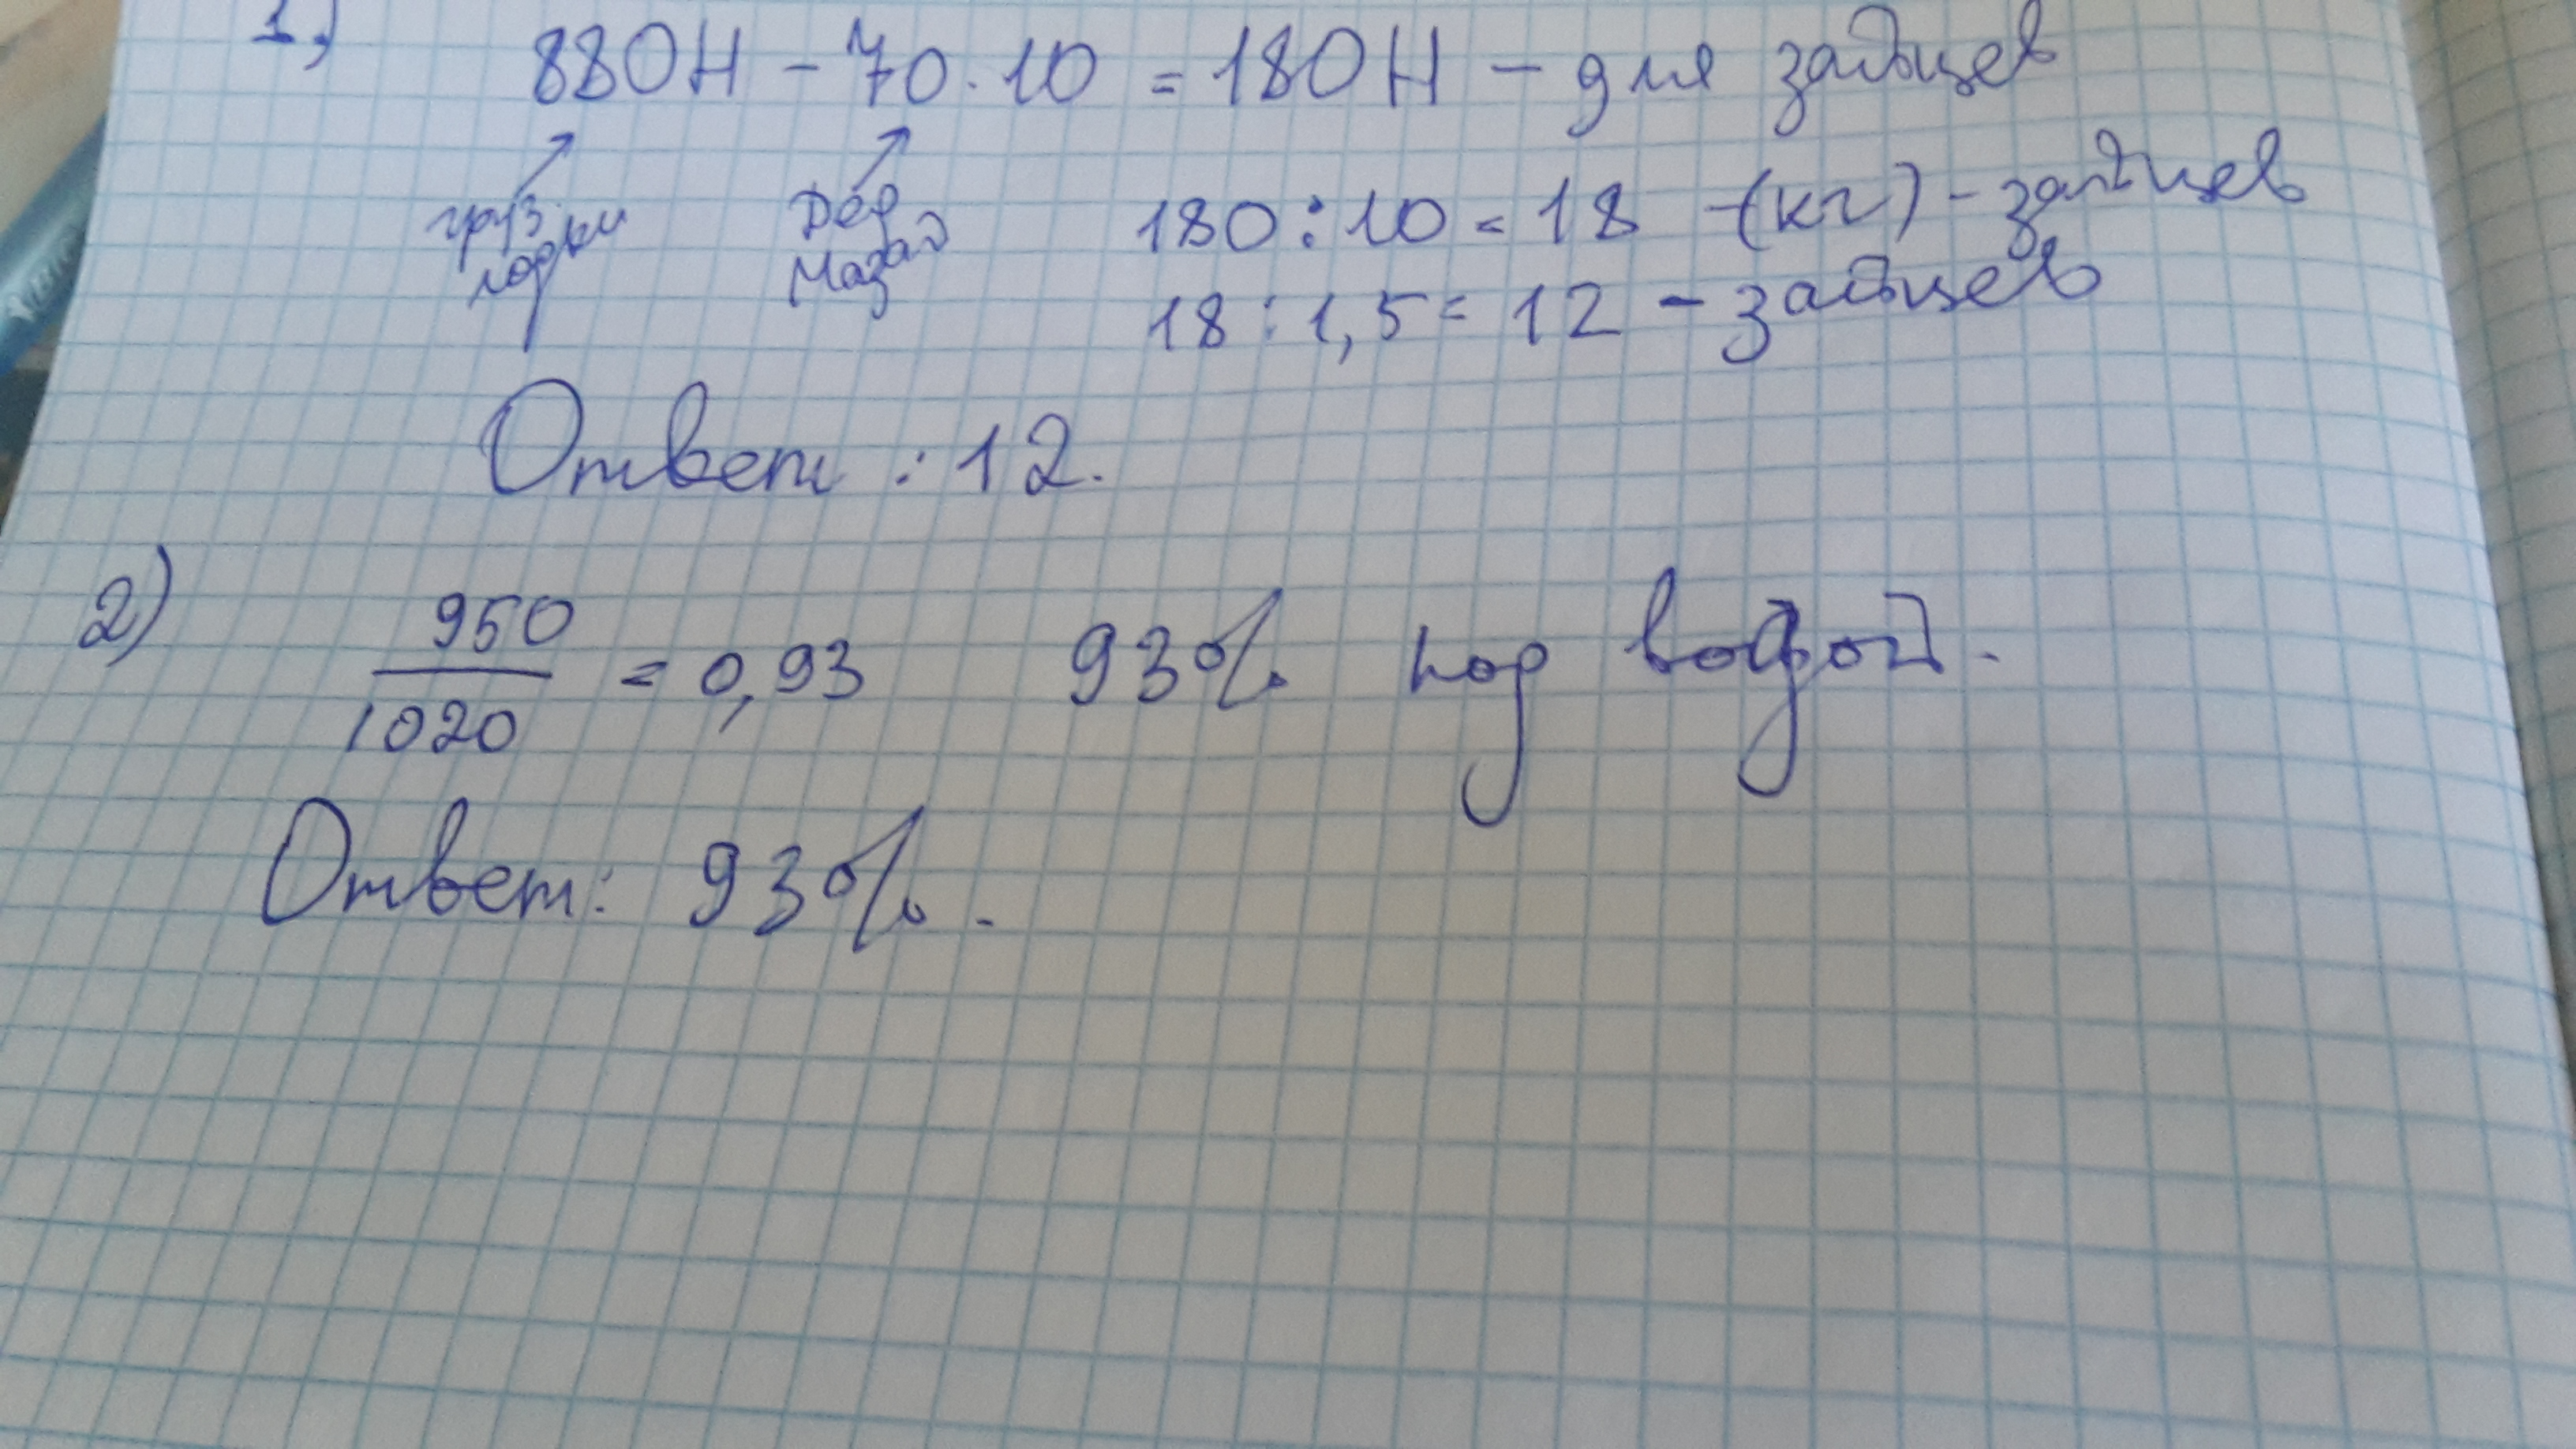 1)
880Н - 70·10 = 180Н - для зайцев
груз лодки
Дед Мазай
180 : 10 = 18 - (кг) - зайцев
18 : 1,5 = 12 - зайцев
Ответ : 12.
2)
950/1020 = 0,93 93% под водой.
Ответ: 93%.